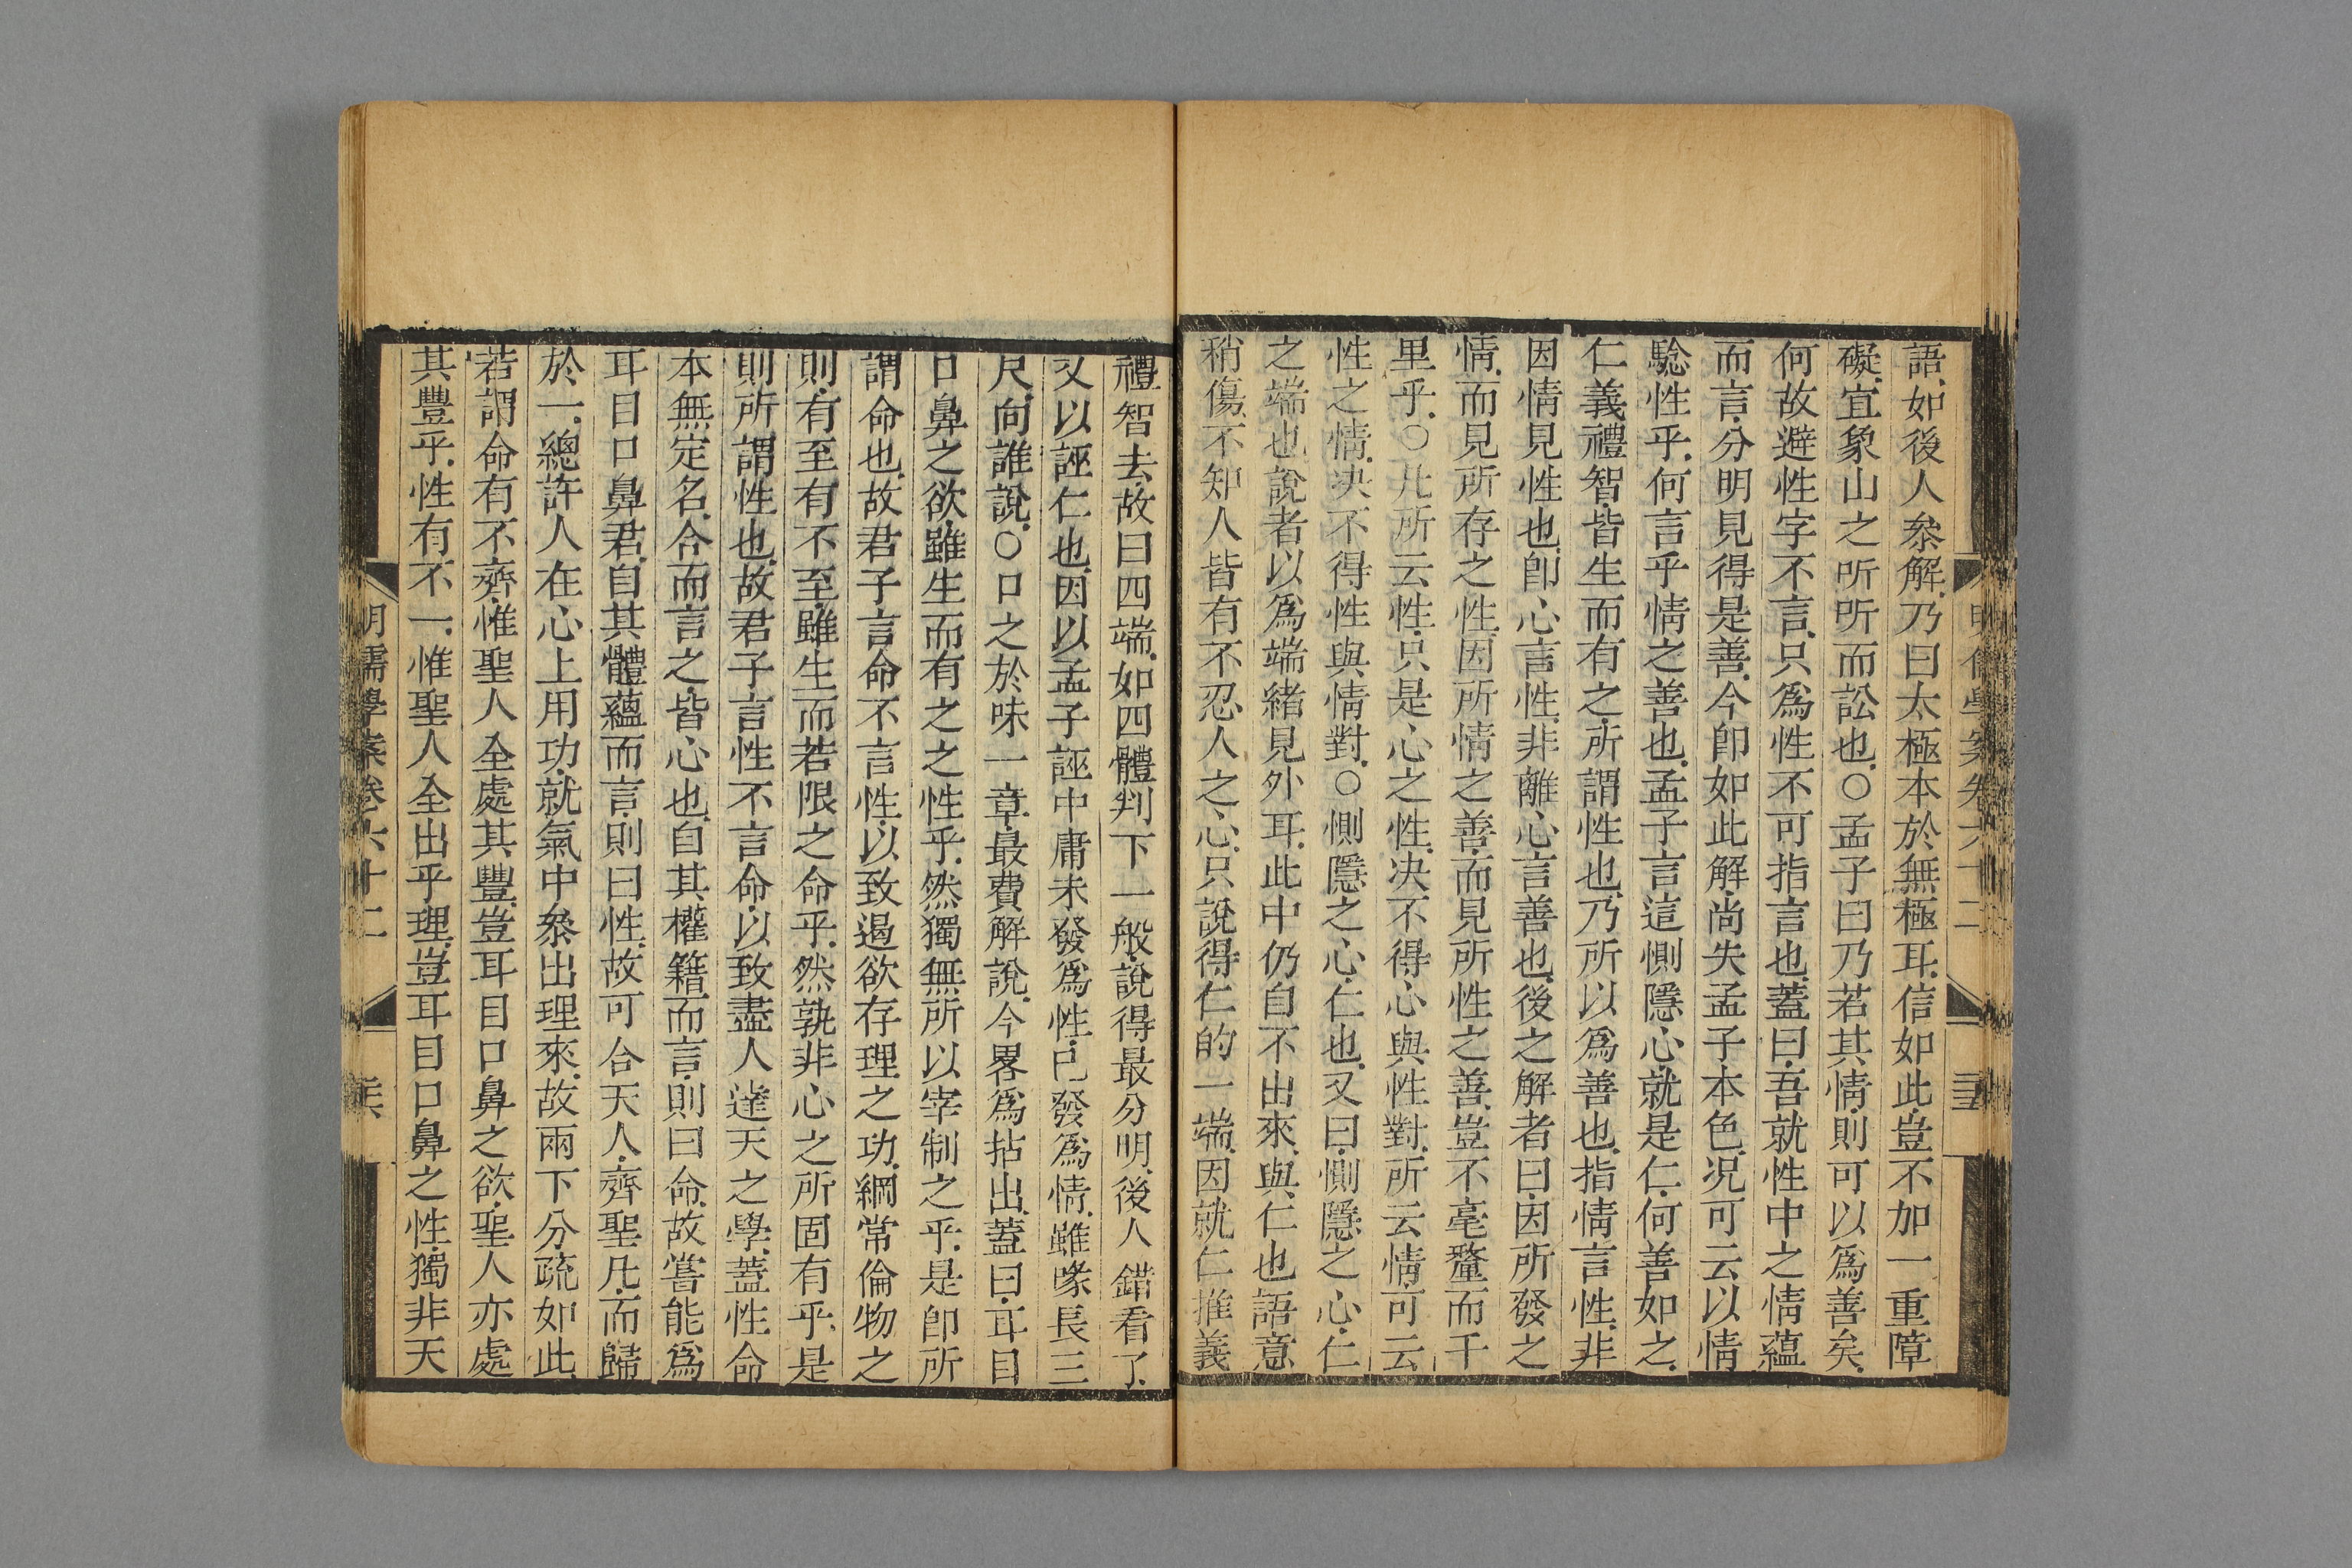 語如後人叅解乃曰太極本於無極耳信如此豈不加一重障
礙宜象山之听听而訟也○孟子曰乃若其情則可以爲善矣
何故避性字不言只爲性不可指言也蓋曰吾就性中之情蘊
而言分明見得是善今卽如此解尚失孟子本色况可云以情
驗性乎何言乎情之善也孟子言這惻隱心就是仁何善如之
仁義禮智皆生而有之所謂性也乃所以爲善也指情言性非
因情見性也卽心言性非離心言善也後之解者曰因所發之
情而見所存之性因所情之善而見所性之善豈不毫釐而千
里乎○凡所云性只是心之性决不得心與性對所云情可云
性之情决不得性與情對○惻隱之心仁也又曰惻隱之心仁
之端也說者以爲端緒見外耳此中仍自不出來與仁也語意
稍傷不知人皆有不忍人之心只說得仁的一端因就仁推義
禮智去故曰四端如四體判下一般說得最分明後人錯看了
又以誣仁也因以孟子誣中庸未發爲性已發爲情雖喙長三
尺向誰說○口之於味一章最費解說今畧爲拈出蓋曰耳目
口鼻之欲雖生而有之之性乎然獨無所以宰制之乎是卽所
謂命也故君子言命不言性以致遏欲存理之功綱常倫物之
則有至有不至雖生而若限之命乎然孰非心之所固有乎是
則所謂性也故君子言性不言命以致盡人達天之學蓋性命
本無定名合而言之皆心也自其權籍而言則曰命故嘗能爲
耳目口鼻君自其體蘊而言則曰性故可合天人齊聖凡而歸
於一總許人在心上用功就氣中叅出理來故兩下分疏如此
若謂命有不齊惟聖人全處其豐豈耳目口鼻之欲聖人亦處
其豐乎性有不一惟聖人全出乎理豈耳目口鼻之性獨非天
明儒學案卷六十二